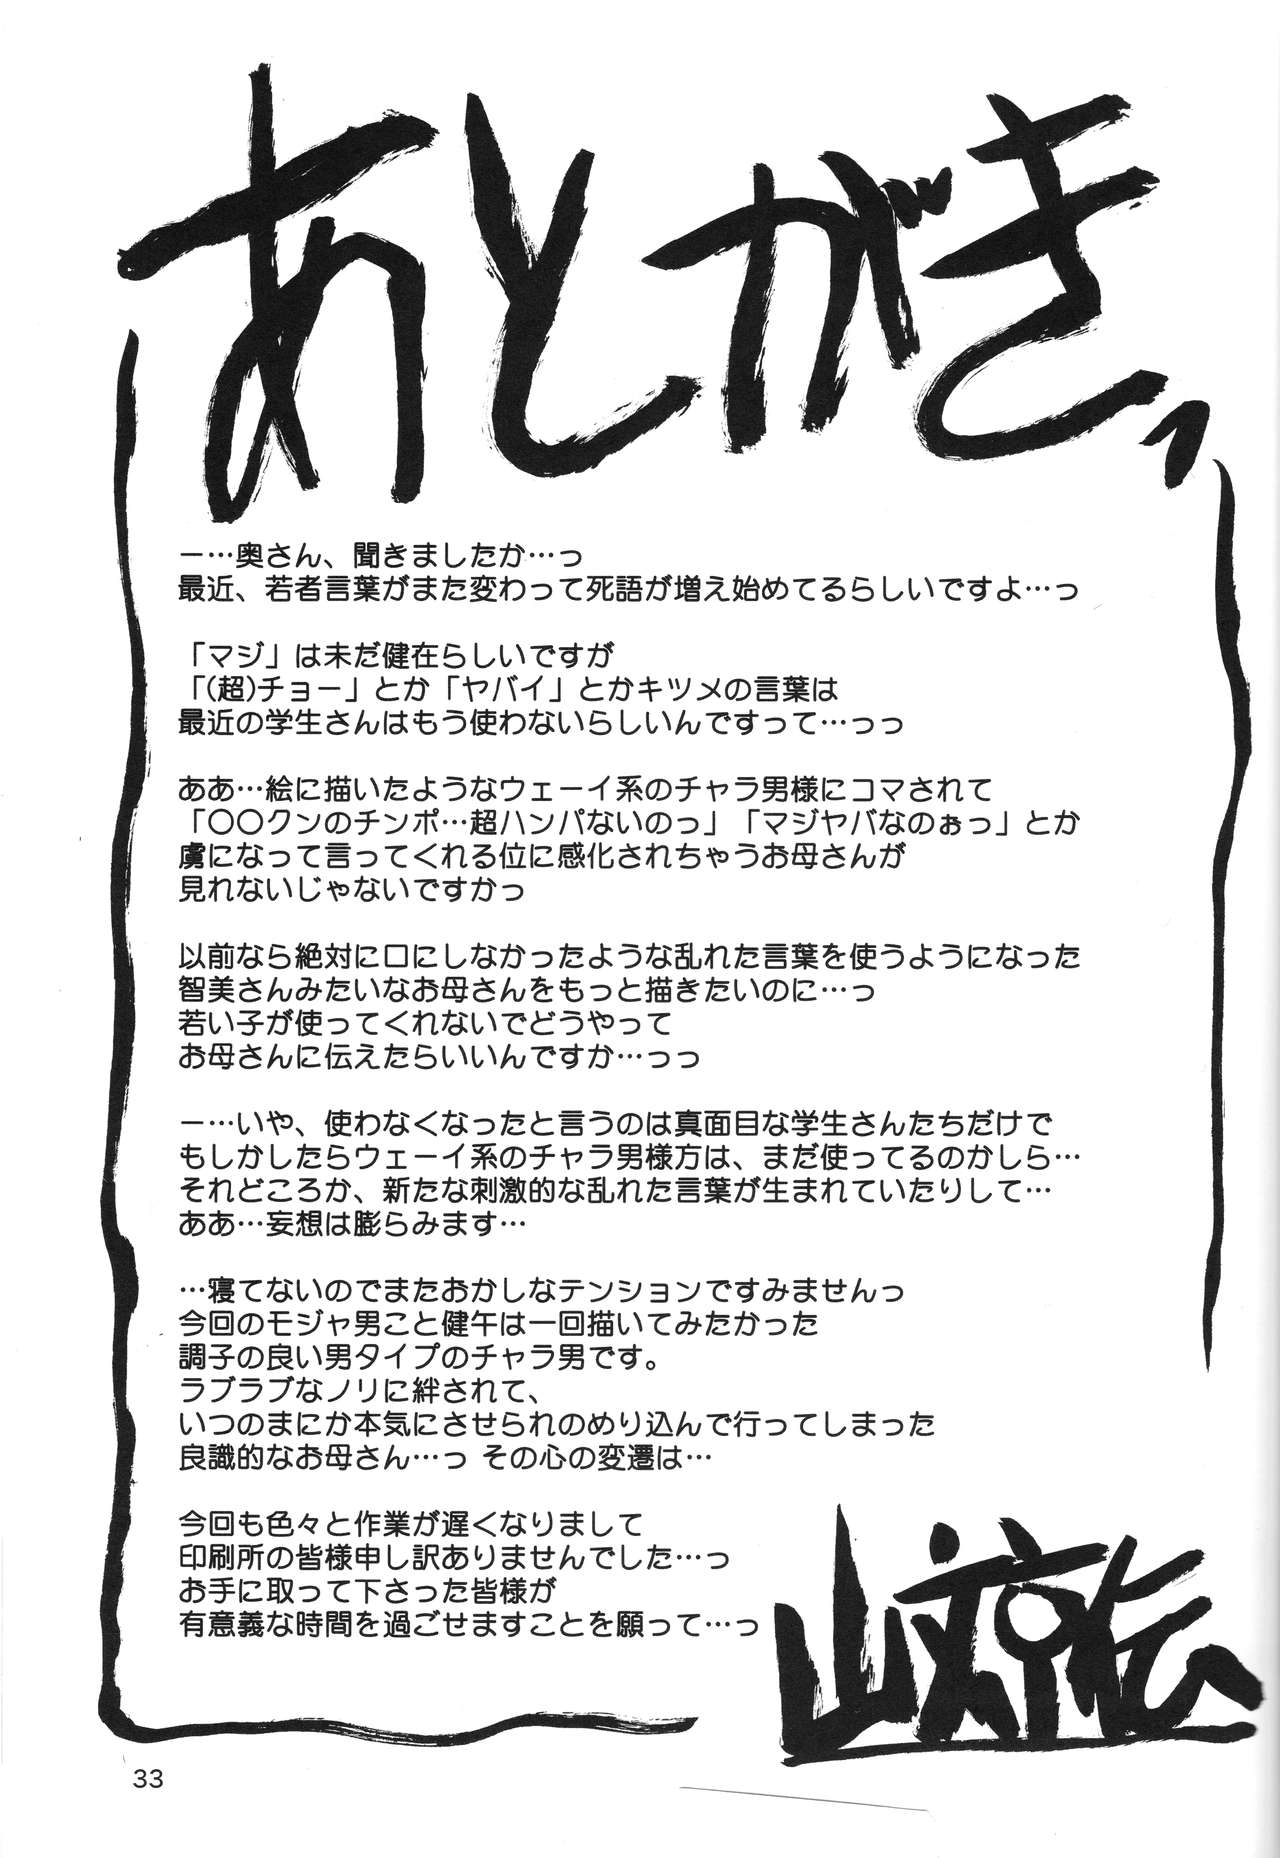 あとがきっ
ー…奥さん、聞きましたか…っ
最近、若者言葉がまた変わって死語が増え始めてるらしいですよ…っ
「マジ」は未だ健在らしいですが
「(超)チョー」とか「ヤバイ」とかキツメの言葉は
最近の学生さんはもう使わないらしいんですって…っっ
ああ…絵に描いたようなウェーイ系のチャラ男様にコマされて
「〇〇クンのチンポ…超ハンパないのっ」「マジヤバなのぉっ」とか
虜になって言ってくれる位に感化されちゃうお母さんが
見れないじゃないですかっ
以前なら絶対に口にしなかったような乱れた言葉を使うようになった
智美さんみたいなお母さんをもっと描きたいのに…っ
若い子が使ってくれないでどうやって
お母さんに伝えたらいいんですか…っっ
ー…いや、使わなくなったと言うのは真面目な学生さんたちだけで
もしかしたらウェーイ系のチャラ男様方は、まだ使ってるのかしら…
それどころか、新たな刺激的な乱れた言葉が生まれていたりして…
ああ…妄想は膨らみます…
…寝てないのでまたおかしなテンションですみませんっ
今回のモジャ男こと健午は一回描いてみたかった
調子の良い男タイプのチャラ男です。
ラブラブなノリに絆されて、
いつのまにか本気にさせられのめり込んで行ってしまった
良識的なお母さん…っ その心の変遷は…
今回も色々と作業が遅くなりまして
印刷所の皆様申し訳ありませんでした…っ
お手に取って下さった皆様が
有意義な時間を過ごせますことを願って…っ
山文京伝
33